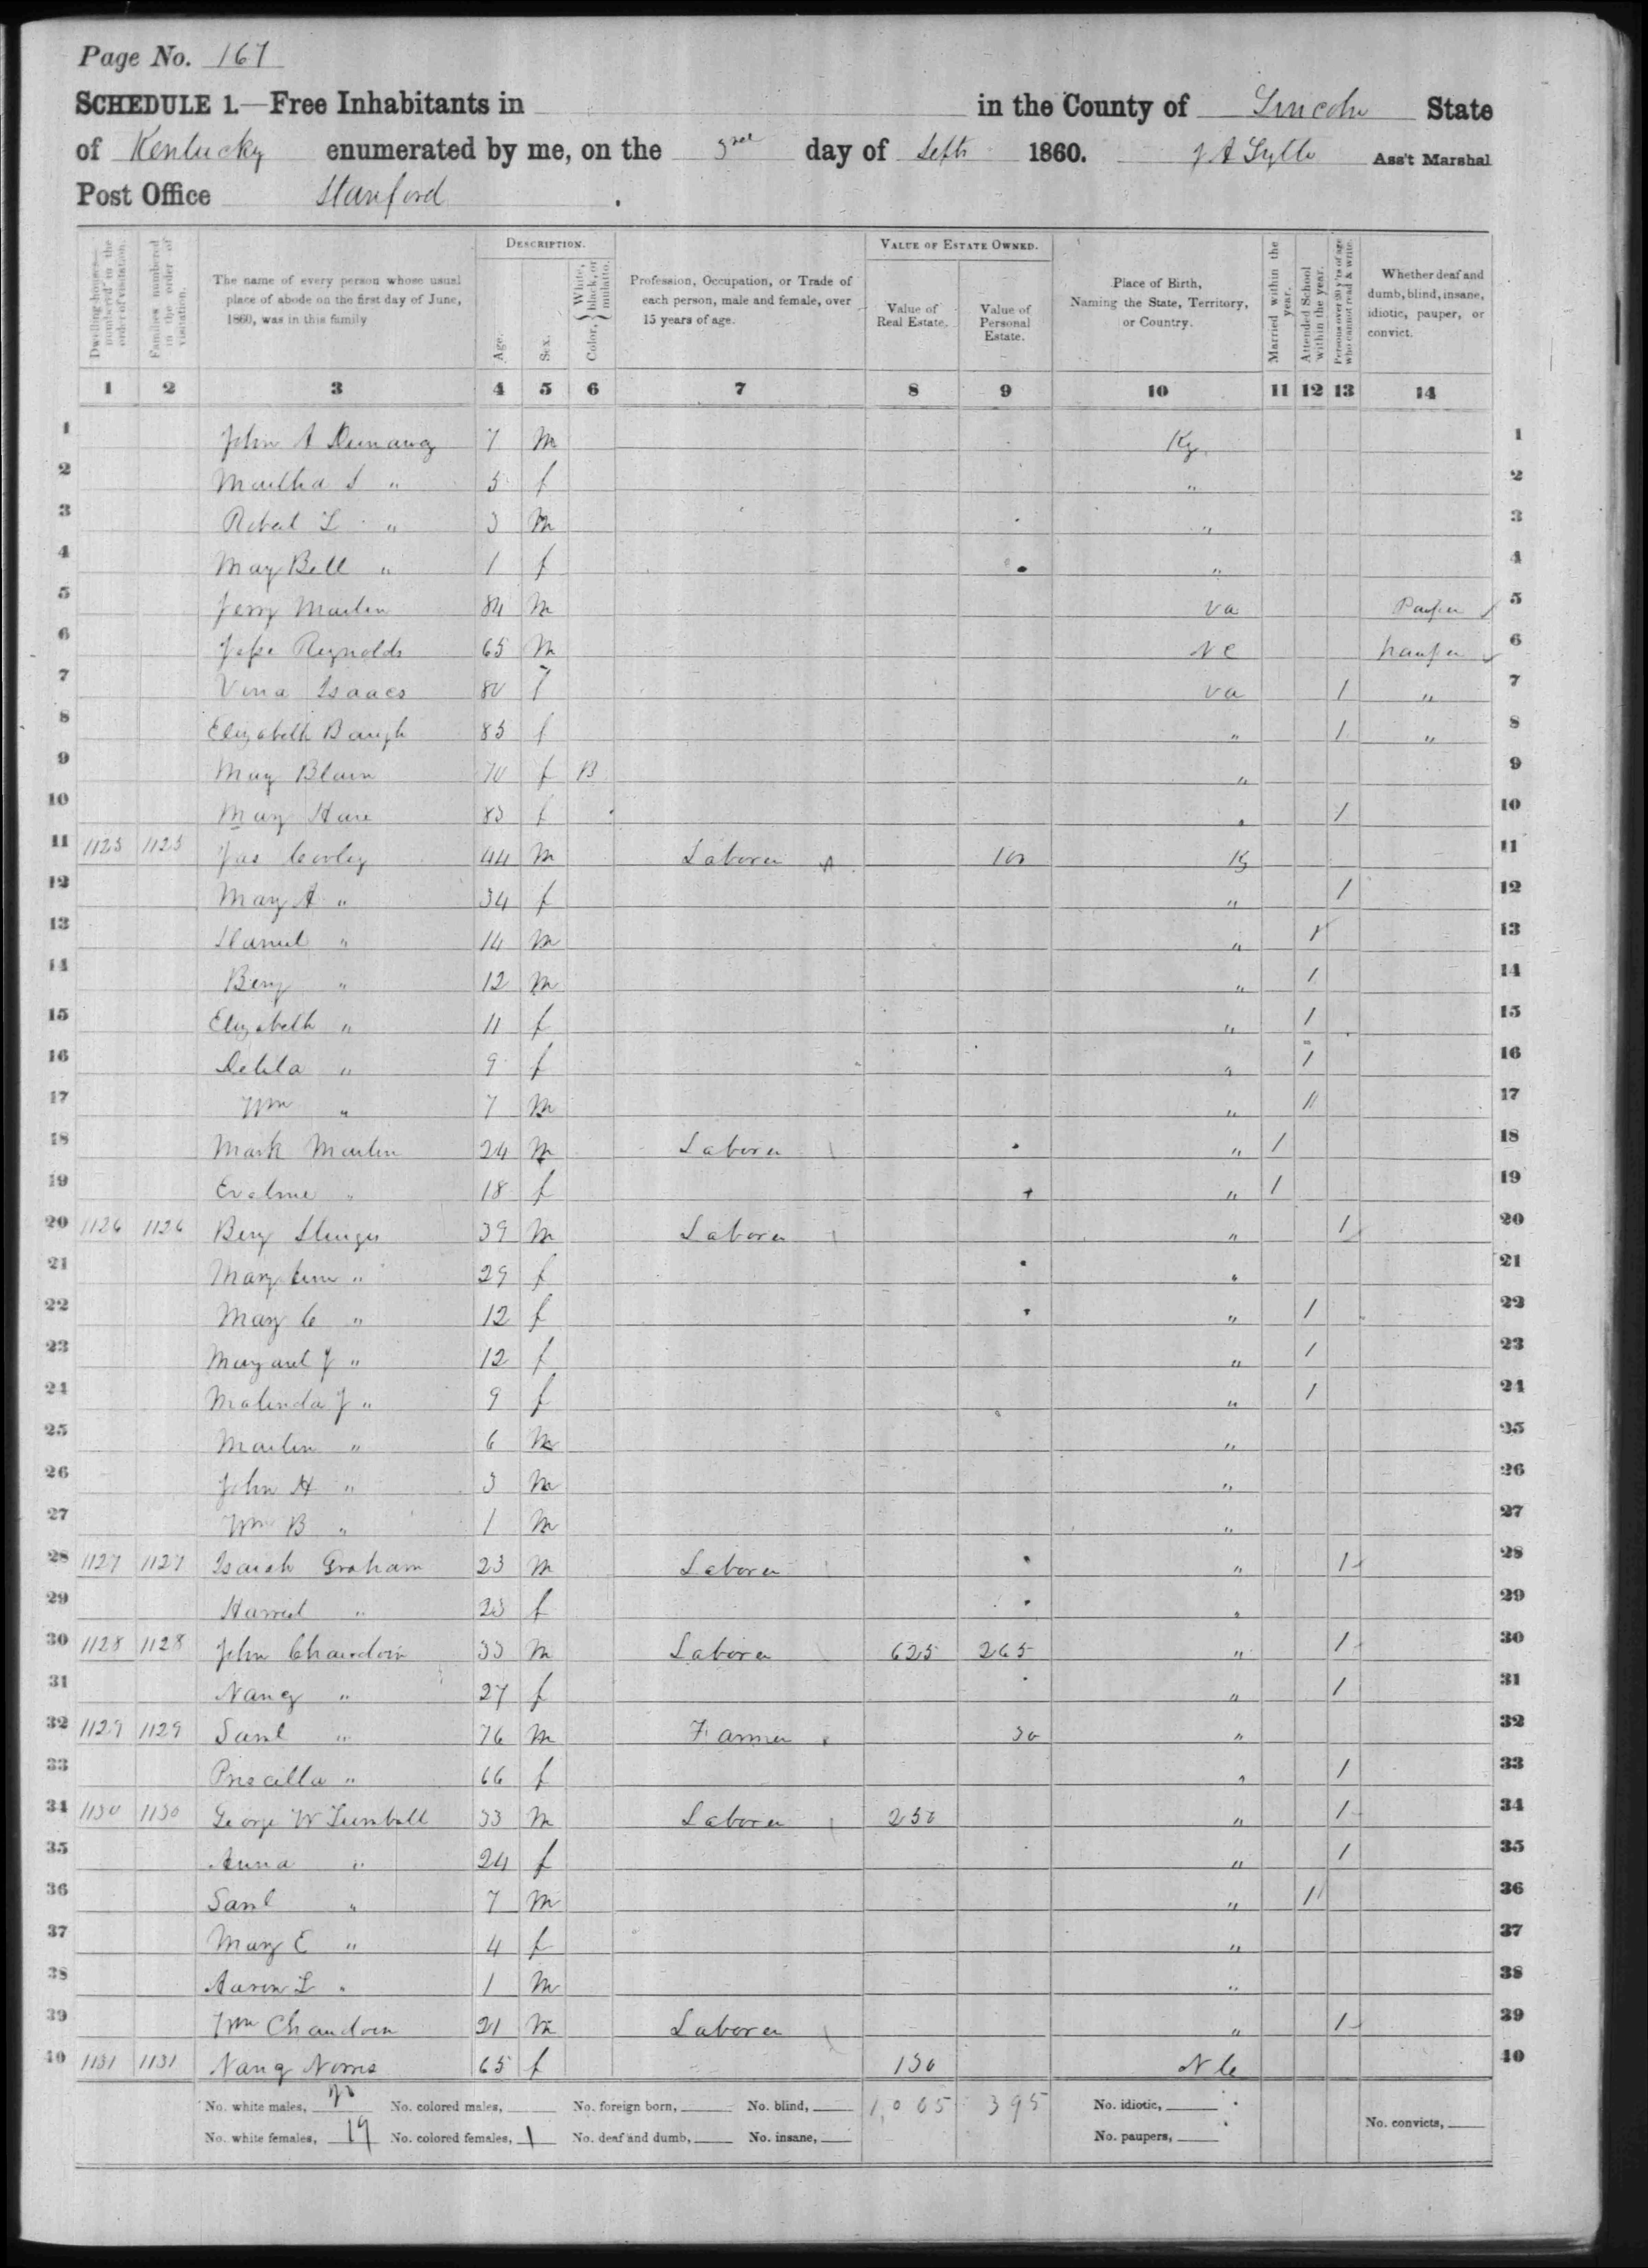 Page No. 167
SCHEDULE 1.—Free Inhabitants in in the County of Lincoln State
of Kentucky enumerated by me, on the 3rd day of Septr 1860. J A Lytle Ass't Marshal
Post Office Stanford
Dwelling-houses—numbered in the order of visitation.
Families numbered in the order of visitation.
The name of every person whose usual place of abode on the first day of June, 1860, was in this family
DESCRIPTION.
Age.
Sex.
Color, { White, black, or mulatto.
Profession, Occupation, or Trade of each person, male and female, over 15 years of age.
VALUE OF ESTATE OWNED.
Value of Real Estate.
Value of Personal Estate.
Place of Birth, Naming the State, Territory, or Country.
Married within the year.
Attended School within the year.
Persons over 20 y'rs of age who cannot read & write.
Whether deaf and dumb, blind, insane, idiotic, pauper, or convict.
1 2 3 4 5 6 7 8 9 10 11 12 13 14
1 John A Dunaway 7 m Ky 1
2 Martha S " 5 f " 2
3 Robert L " 3 m " 3
4 May Bell " 1 f " 4
5 Jerry Martin 84 m Va Pauper 5
6 Jesse Reynolds 65 m N C pauper 6
7 Vina Isaacs 80 f Va 1 " 7
8 Elizabeth Baugh 85 f " 1 " 8
9 May Blain 70 f B " 9
10 May Hare 83 f " 1 10
11 1125 1125 Jas Cooley 44 m Laborer 100 Ky 11
12 Mary A " 34 f " 1 12
13 Daniel " 14 m " 1 13
14 Benj " 12 m " 1 14
15 Elizabeth " 11 f " 1 15
16 Delila " 9 f " 1 16
17 Wm " 7 m " 1 17
18 Mark Martin 24 m Laborer " 1 18
19 Evaline " 18 f " 1 19
20 1126 1126 Benj 39 m Laborer " 1 20
21 Mary Ann " 29 f " 21
22 Mary C " 12 f " 1 22
23 Margaret J " 12 f " 1 23
24 Malinda J " 9 f " 1 24
25 Martin " 6 m " 25
26 John H " 3 m " 26
27 Wm B " 1 m " 27
28 1127 1127 Isaiah Graham 23 m Laborer " 1 28
29 Harriet " 23 f " 29
30 1128 1128 John Chaudoin 33 m Laborer 625 265 " 1 30
31 Nancy " 27 f " 1 31
32 1129 1129 Saml " 76 m Farmer 30 " 32
33 Priscilla " 66 f " 1 33
34 1130 1130 George W Turnbull 33 m Laborer 250 " 1 34
35 Anna " 24 f " 1 35
36 Saml " 7 m " 1 36
37 Mary E " 4 f " 37
38 Aaron L " 1 m " 38
39 Wm Chaudoin 21 m Laborer " 1 39
40 1131 1131 Nancy Norris 65 f 130 N C 40
No. white males, 20 No. colored males, No. foreign born, No. blind, 1,005 395 No. idiotic, No. convicts,
No. white females, 19 No. colored females, 1 No. deaf and dumb, No. insane, No. paupers,